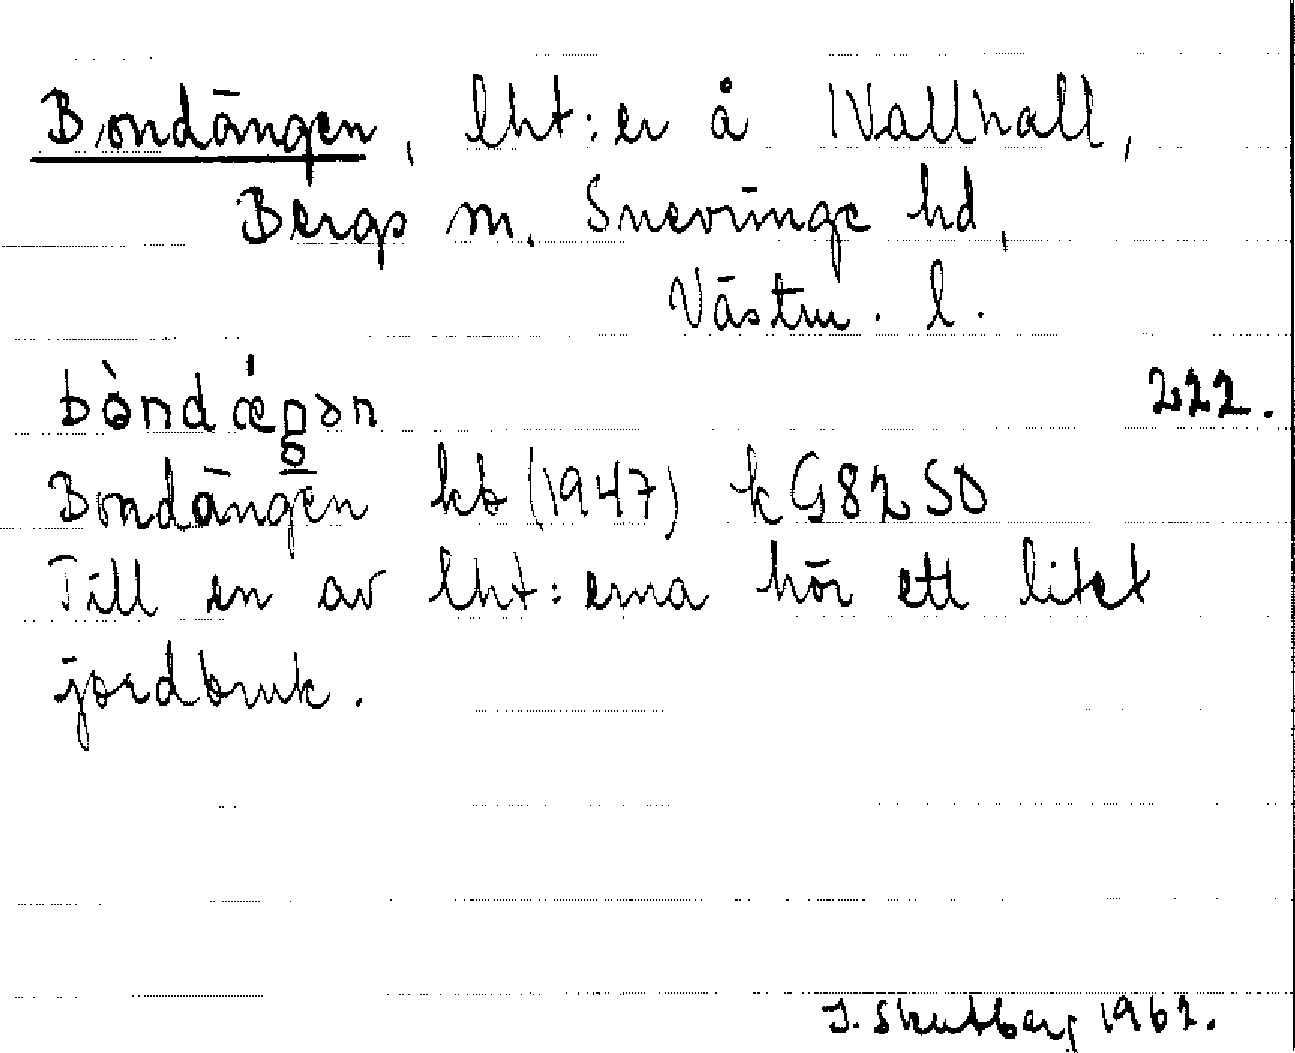 Bondängen, lht:er å Wallhall,
Bergs sn. Snevringe hd,
Västm. l.
bòndæ̀ŋən 222.
Bondängen kb (1947) k G82 SO
Till en av lht:erna hör ett litet
jordbruk.
J. Skutberg 1962.